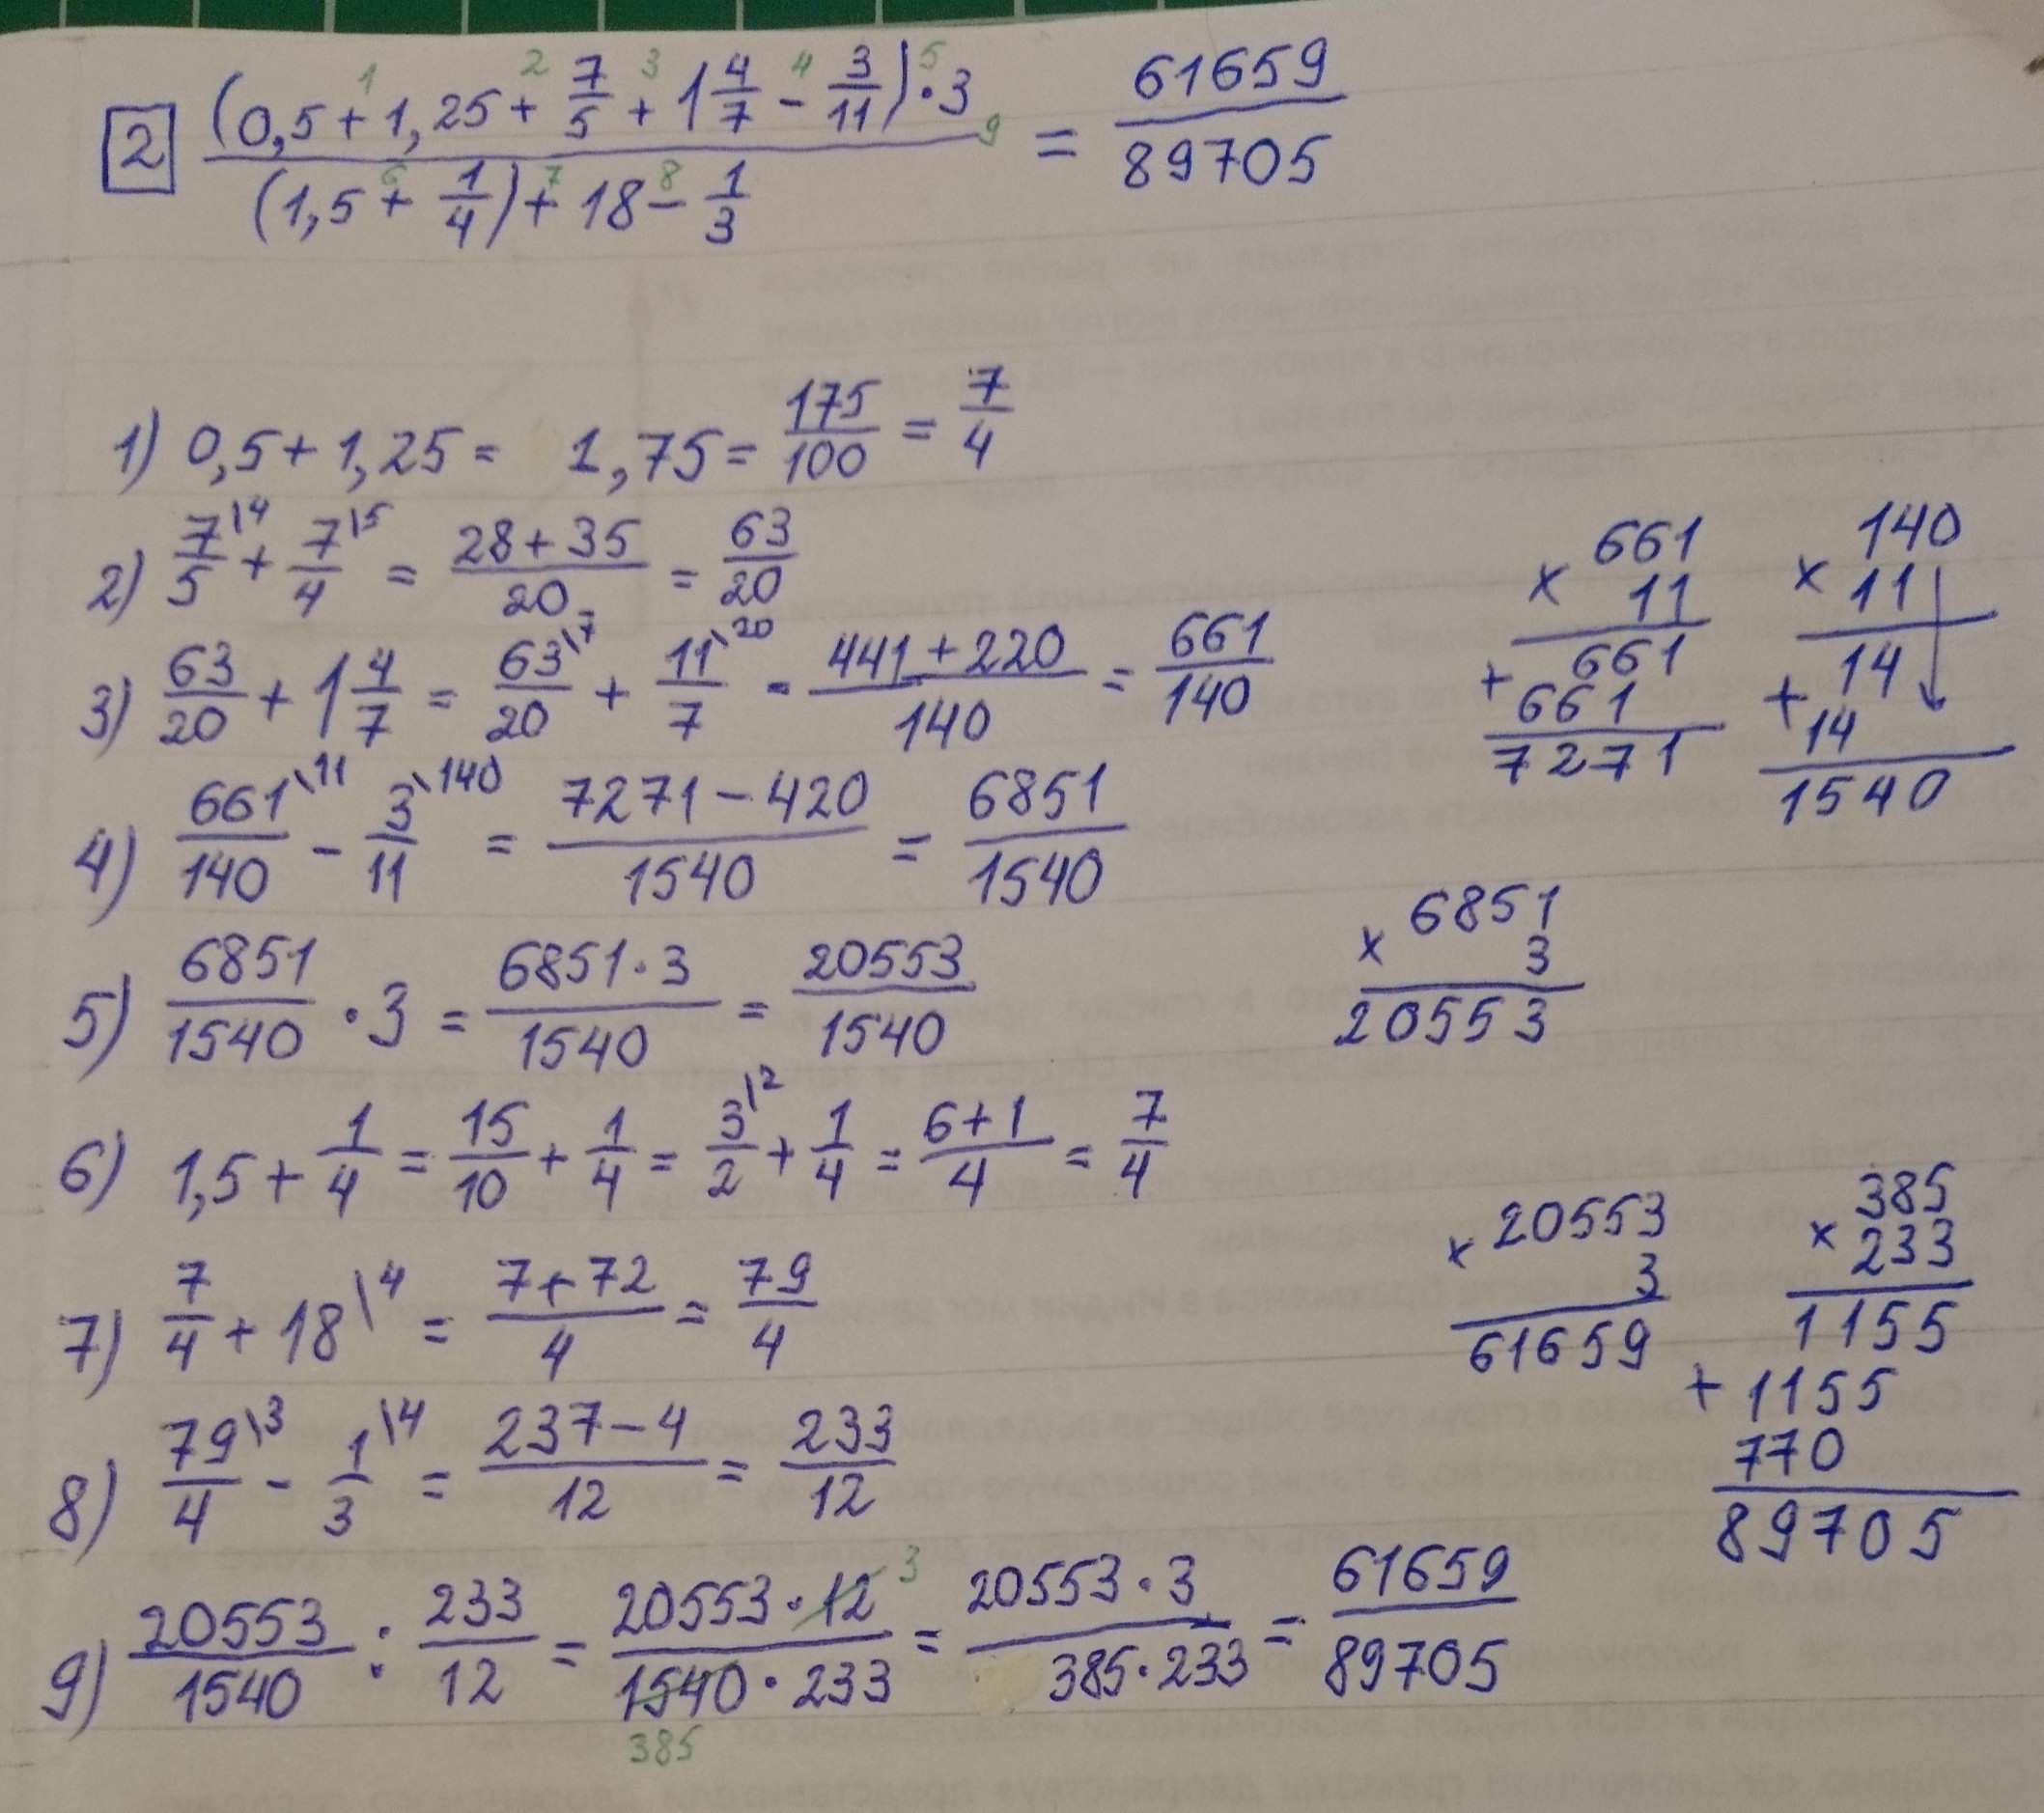 2 ((0,5 + 1,25 + 7/5 + 1 4/7 - 3/11) · 3) / ((1,5 + 1/4) + 18 - 1/3) = 61659/89705
1 2 3 4 5 6 7 8 9
1) 0,5 + 1,25 = 1,75 = 175/100 = 7/4
2) 7/5 \4 + 7/4 \5 = (28 + 35)/20 = 63/20
3) 63/20 + 1 4/7 = 63/20 \7 + 11/7 \20 = (441 + 220)/140 = 661/140
4) 661/140 \11 - 3/11 \140 = (7271 - 420)/1540 = 6851/1540
5) 6851/1540 · 3 = (6851 · 3)/1540 = 20553/1540
6) 1,5 + 1/4 = 15/10 + 1/4 = 3/2 \2 + 1/4 = (6 + 1)/4 = 7/4
7) 7/4 + 18 \4 = (7 + 72)/4 = 79/4
8) 79/4 \3 - 1/3 \4 = (237 - 4)/12 = 233/12
9) 20553/1540 : 233/12 = (20553 · 12)/(1540 · 233) = (20553 · 3)/(385 · 233) = 61659/89705
3
385
661
x 11
661
+ 661
7271
140
x 11
14
+ 14
1540
6851
x 3
20553
20553
x 3
61659
385
x 233
1155
+ 1155
770
89705